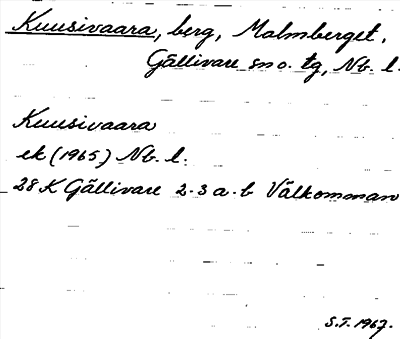 Kuusivaara, berg, Malmberget,
Gällivare sn o. tg, Nb. l.
Kuusivaara
ek (1965) Nb. l.
28 K Gällivare 2-3 a-b Välkomman
S.T. 1967.